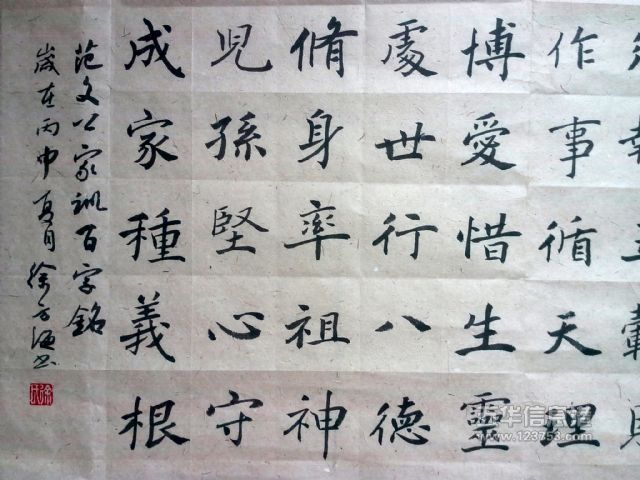 作事循天理
博愛惜生靈
處世行八德
脩身率祖神
兒孫堅心守
成家種義根
范文公家訓百字銘
歲在丙申夏月徐方书
www.123753.com